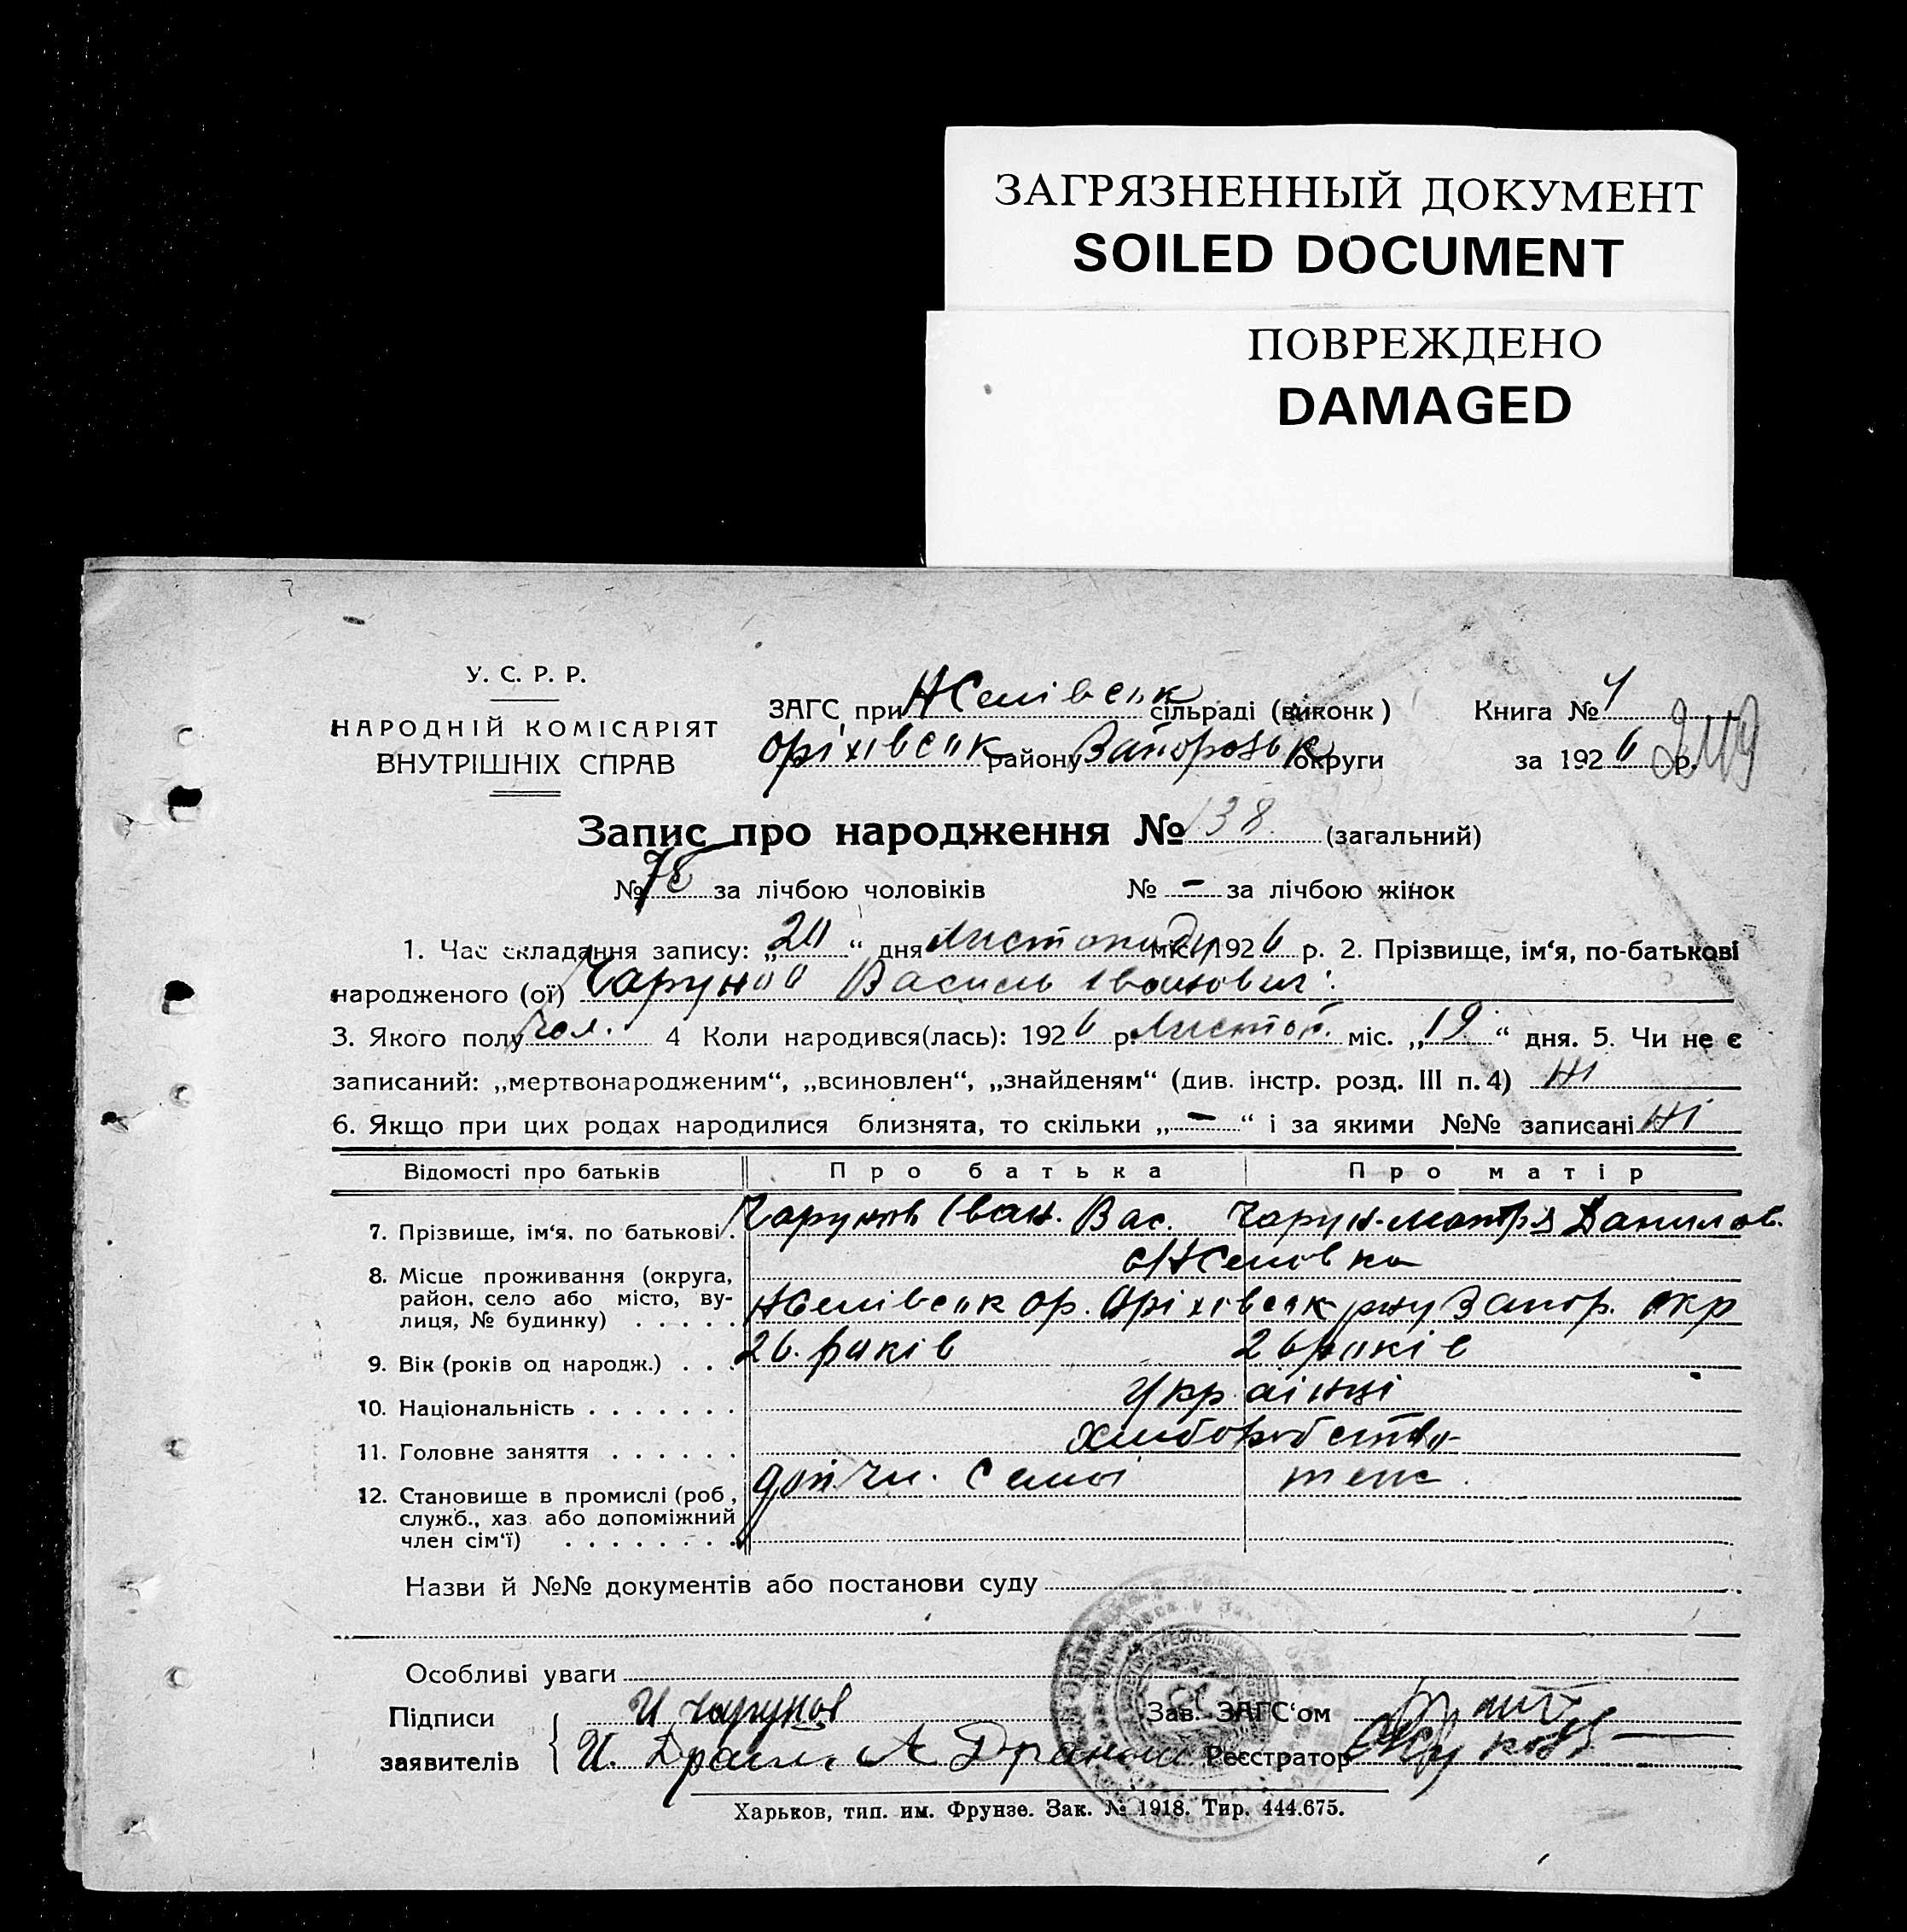 ЗАГРЯЗНЕННЫЙ ДОКУМЕНТ
SOILED DOCUMENT
ПОВРЕЖДЕНО
DAMAGED
У. С. Р. Р.
НАРОДНІЙ КОМІСАРІЯТ
ВНУТРІШНІХ СПРАВ
ЗАГС при сільраді (виконк)
Оріхівськ району Запорозьк округи
Книга №
за 1926 р.
Запис про народження № 138 (загальний)
№ 78 за лічбою чоловіків № - за лічбою жінок
1. Час складання запису: „20“ дня Листопаду міс. 1926 р. 2. Прізвище, ім‘я, по-батькові
народженого (ої) Чарунов Василь Іванович
3. Якого полу Чол. 4 Коли народився(лась): 1926 р. Листоп. міс. „19“ дня. 5. Чи не є
записаний: „мертвонародженим“, „всиновлен“, „знайденям“ (див. інстр. розд. III п. 4) Ні
6. Якщо при цих родах народилися близнята, то скільки „-“ і за якими №№ записані Ні
Відомості про батьків Про батька Про матір
7. Прізвище, ім‘я, по батькові. Чарунов Іван. Вас. Чарун. Мотря Данилов.
8. Місце проживання (округа, район, село або місто, вулиця, № будинку) . . . . . Оріхівськ р-ну Запор. окр
9. Вік (років од народж.) . . . 26. років 26 років
10. Національність . . . . . . . Українці
11. Головне заняття . . . . . . Хліборобство
12. Становище в промислі (роб, служб., хаз або допоміжний член сім‘ї) . . . . . . . . доп. чл. Семьї теж.
Назви й №№ документів або постанови суду
Особливі уваги
Підписи И Чарунов Зав. ЗАГС‘ом
заявителів Реєстратор
Харьков, тип. им. Фрунзе. Зак. № 1918. Тир. 444.675.